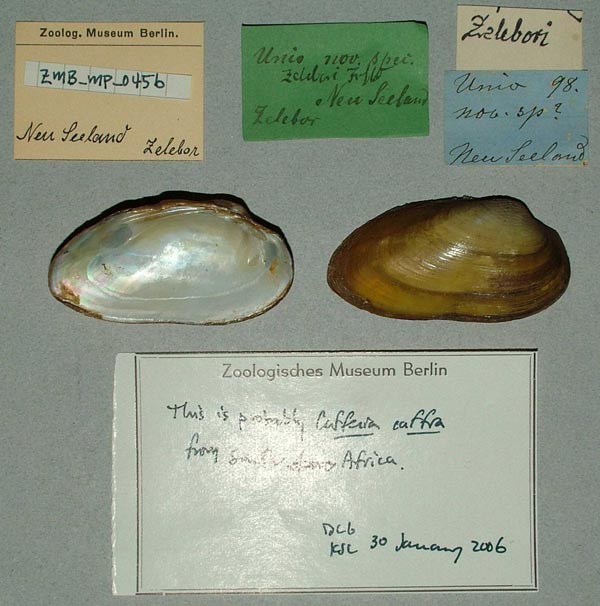 Zoolog. Museum Berlin.
ZMB_MP_0456
Neu Seeland
Zelebor
Unio nov. spec.
Zelebori
Neu Seeland
Zelebor
Zelebori
Unio 98.
nov. sp?
Neu Seeland
Zoologisches Museum Berlin
This is probably Cafferia caffra
from Africa.
DLG
KSC 30 January 2006